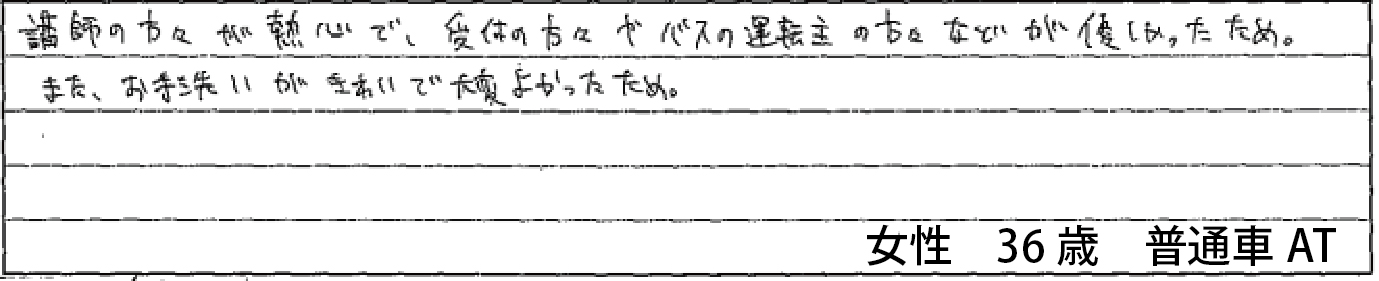 講師の方々が熱心で、受付の方々やバスの運転主の方々などが優しかったため。
また、お手洗いがきれいで大変よかったため。
女性 36歳 普通車AT